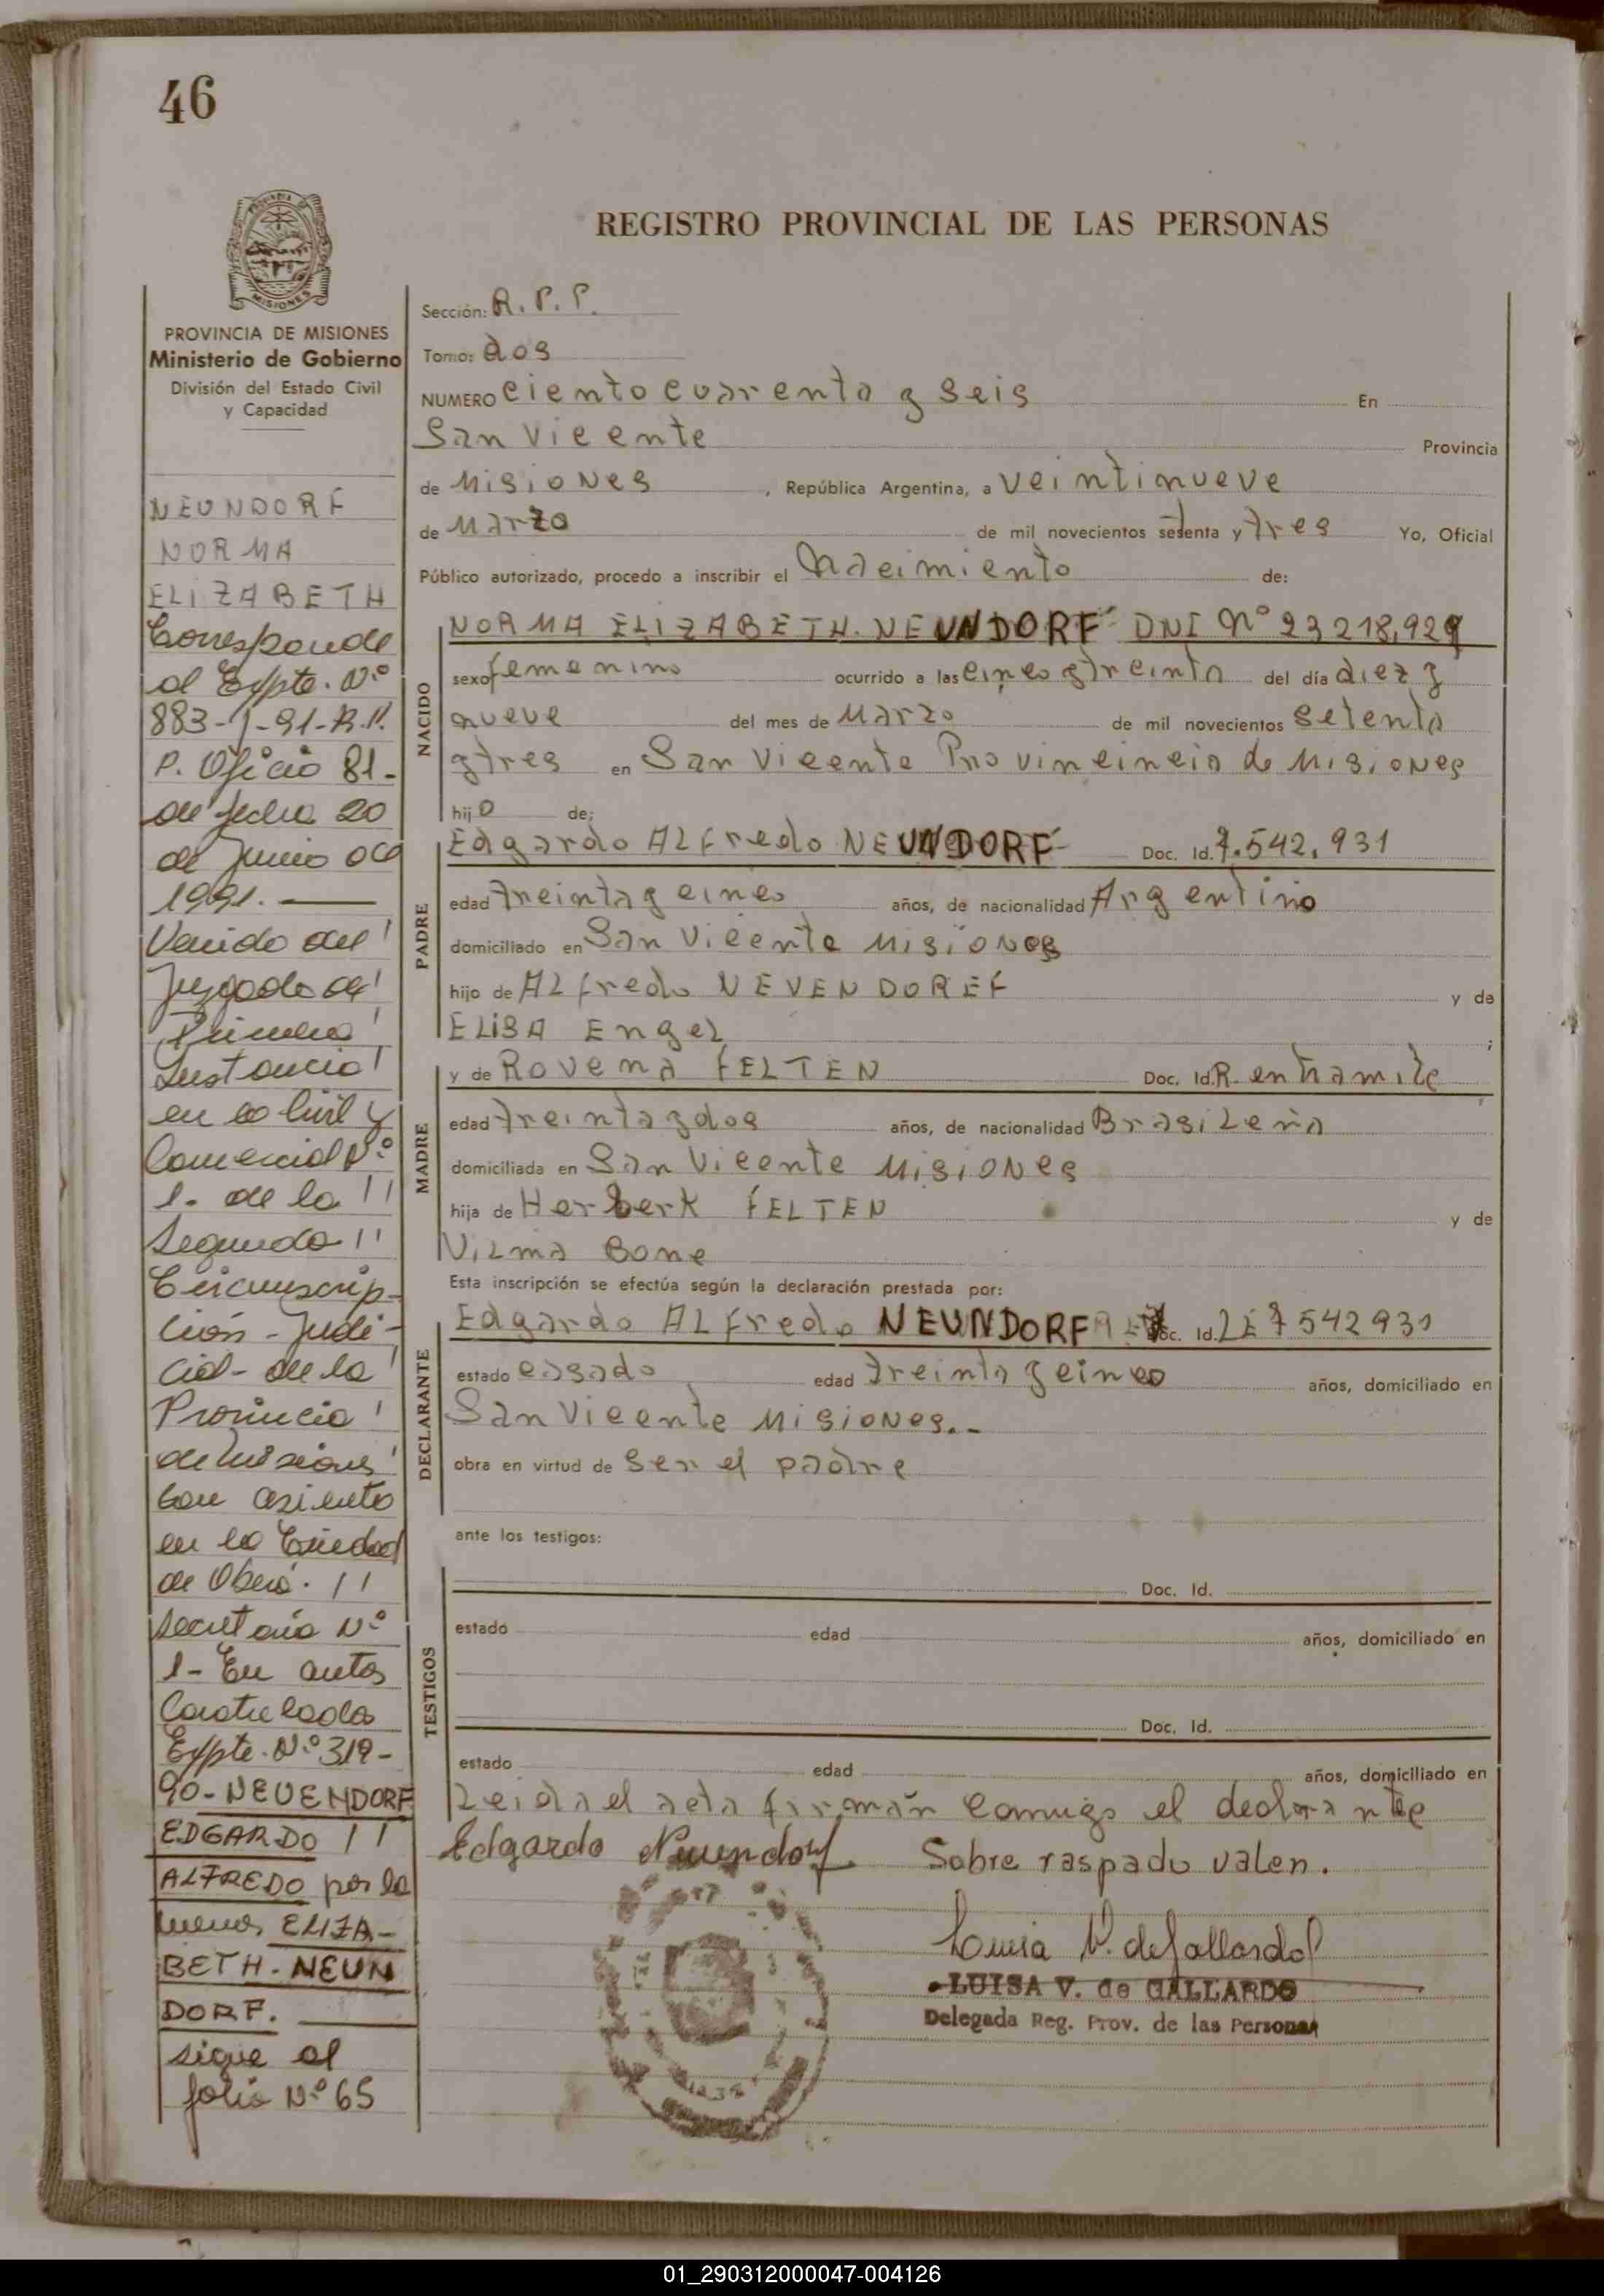 46
REGISTRO PROVINCIAL DE LAS PERSONAS
MISIONES
PROVINCIA DE MISIONES
Ministerio de Gobierno
División del Estado Civil
y Capacidad
NEUNDORF
NORMA
ELIZABETH
Corresponde
al Expte. Nº
883-J-91-R.P.
P. Oficio 81-
de fecha 20
de Junio de
1991.
Venido del
Juzgado de
Primera
Instancia
en lo Civil y
Comercial Nº
1. de la
Segunda
Circunscrip-
ción - Judi-
cial - de la
Provincia
de Misiones
con asiento
en la Ciudad
de Oberá.
Secretaría Nº
1- En autos
Caratulados
Expte. Nº 319-
90- NEUENDORF
EDGARDO
ALFREDO por la
menor ELIZA-
BETH. NEUN
DORF.
sigue al
folio Nº 65
Sección: R. P. P.
Tomo: dos
NUMERO ciento cuarenta y seis En
San Vicente Provincia
de Misiones , República Argentina, a veintinueve
de Marzo de mil novecientos setenta y tres Yo, Oficial
Público autorizado, procedo a inscribir el Nacimiento de:
NACIDO
NORMA ELIZABETH. NEUNDORF DNI Nº 23218,929
sexo femenino ocurrido a las cinco y treinta del día diez y
nueve del mes de Marzo de mil novecientos setenta
y tres en San Vicente Provincincia de Misiones
hij o de;
PADRE
Edgardo Alfredo NEUNDORF Doc. Id. 7.542,931
edad treinta y cinco años, de nacionalidad Argentino
domiciliado en San Vicente Misiones
hijo de Alfredo NEVENDOREF y de
ELISA Engel ;
MADRE
y de Rovena FELTEN Doc. Id. R. en tramite
edad treinta y dos años, de nacionalidad Brasileña
domiciliada en San Vicente Misiones
hija de Herberk FELTEN y de
Vilma Bone
Esta inscripción se efectúa según la declaración prestada por:
DECLARANTE
Edgardo Alfredo NEUNDORF Doc. Id. LE 7542931
estado casado edad treinta y cinco años, domiciliado en
San Vicente Misiones.-
obra en virtud de ser el padre
ante los testigos:
TESTIGOS
Doc. Id.
estado edad años, domiciliado en
Doc. Id.
estado edad años, domiciliado en
Leida el acta firmán conmigo el declarante
Edgardo Neuendorf Sobre raspado valen.
Luisa V. de Gallardo
LUISA V. de GALLARDO
Delegada Reg. Prov. de las Personas
01_290312000047-004126